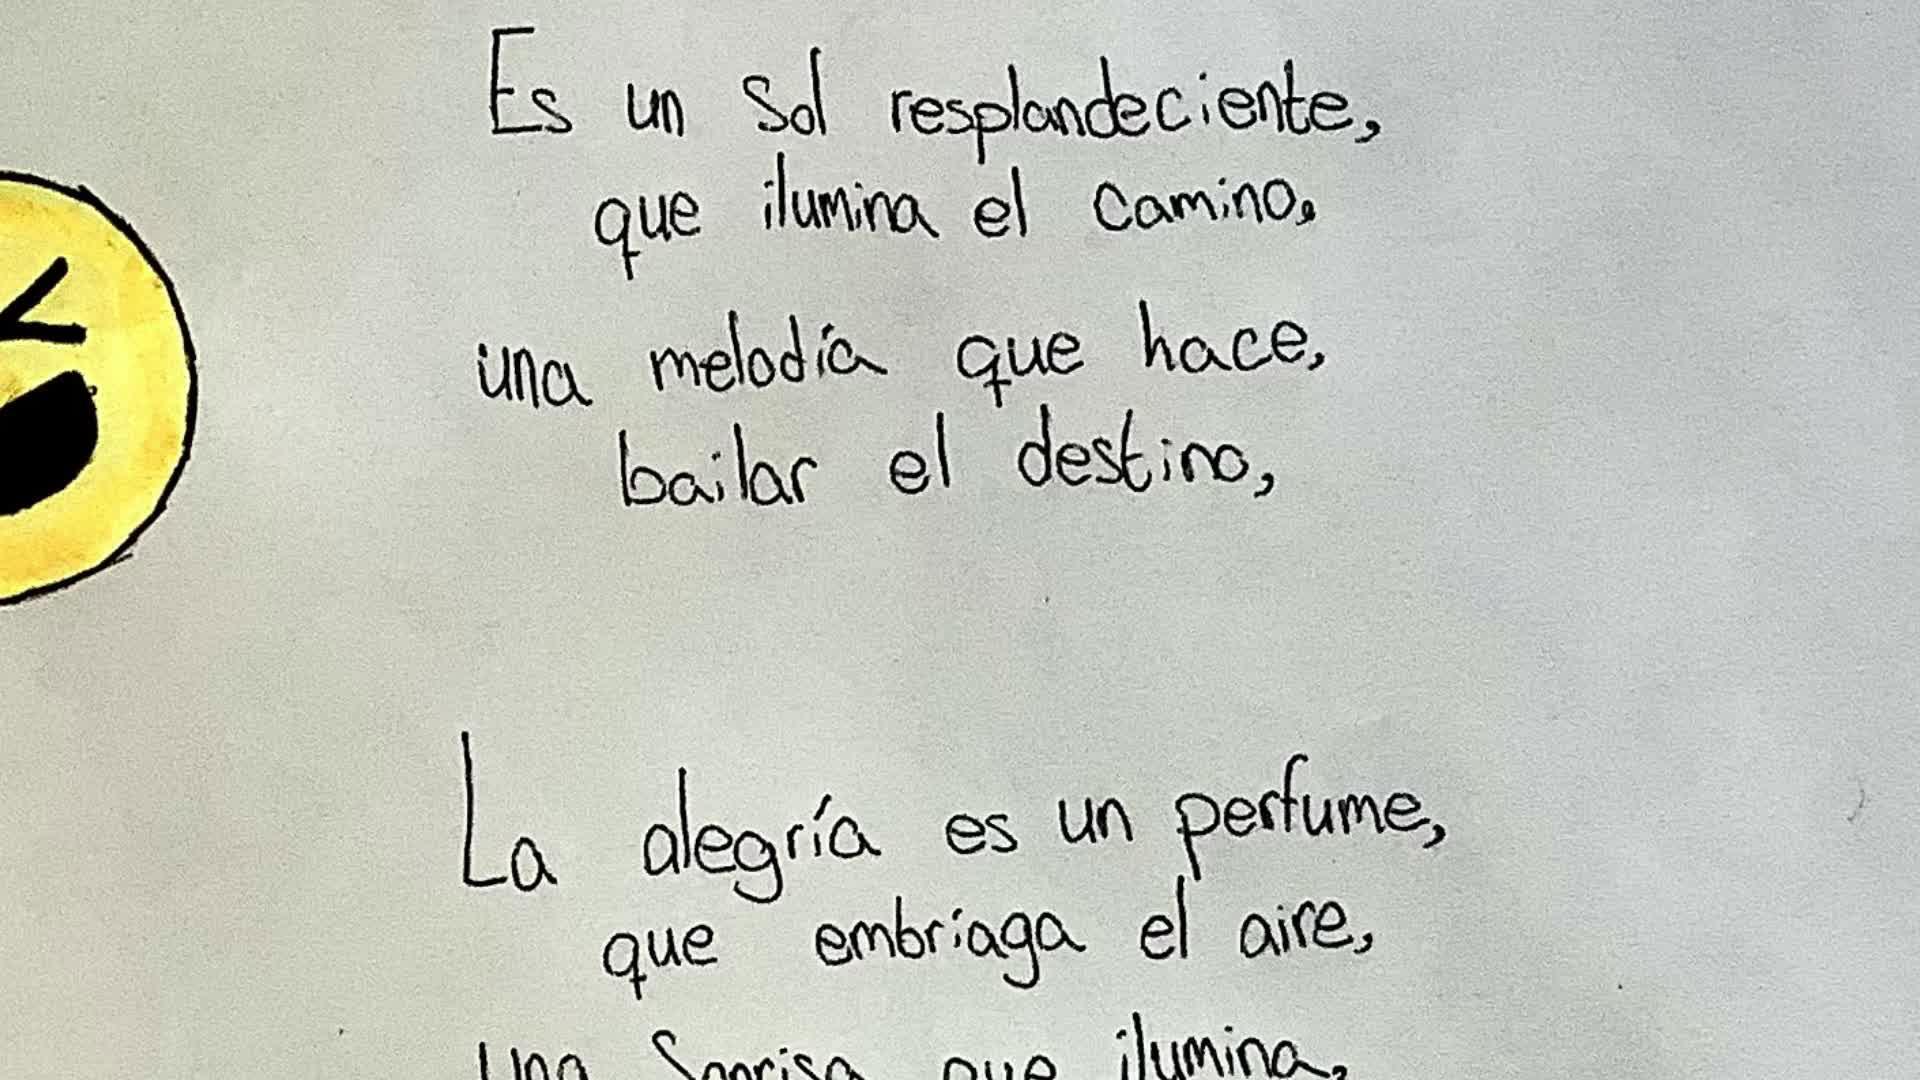 Es un sol resplandeciente,
que ilumina el camino,
una melodía que hace,
bailar el destino,
La alegría es un perfume,
que embriaga el aire,
una sonrisa que ilumina,